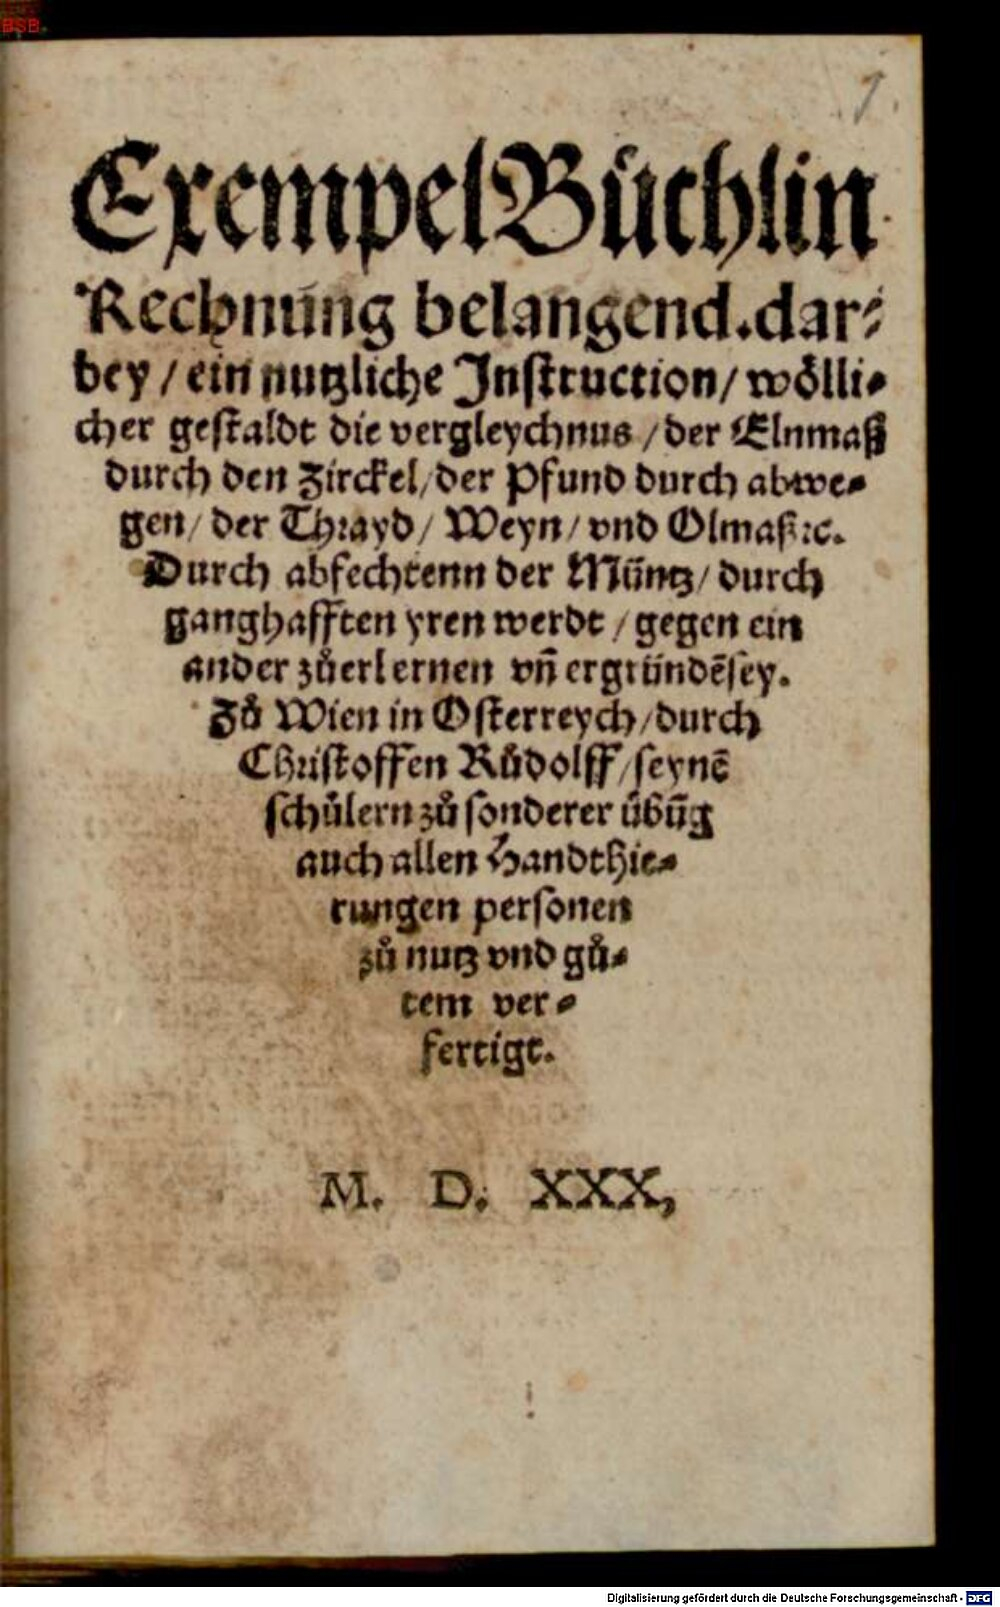 BSB
Exempel Bůchlin
Rechnūng belangend. dar⸗
bey / ein nutzliche Instruction / wölli⸗
cher gestaldt die vergleychnus / der Elnmaß
durch den Zirckel / der Pfund durch abwe⸗
gen / der Thrayd / Weyn / vnd Olmaß ꝛc.
Durch abfechtenn der Müntz / durch
ganghafften yren werdt / gegen ein
ander zůerlernen vn̄ ergründē sey.
Zů Wien in Osterreych / durch
Christoffen Růdolff / seynē
schůlern zů sonderer übūg
auch allen Handthie⸗
rungen personen
zů nutz vnd gů⸗
tem ver⸗
fertigt.
M. D. XXX,
Digitalisierung gefördert durch die Deutsche Forschungsgemeinschaft - DFG